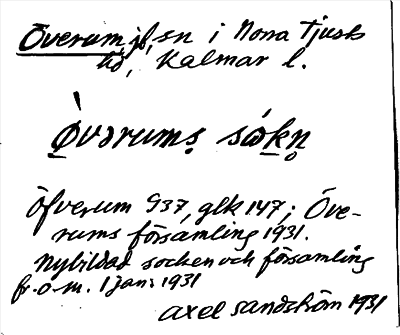 Överum jb, sn i Norra Tjusts
hd, Kalmar l.
Ö̀vərums sókn
Öfverum G37, glk 147; Över-
rums församling 1931.
Nybildad socken och församling
fr.o.m. 1 jan. 1931
Axel Sandström 1931